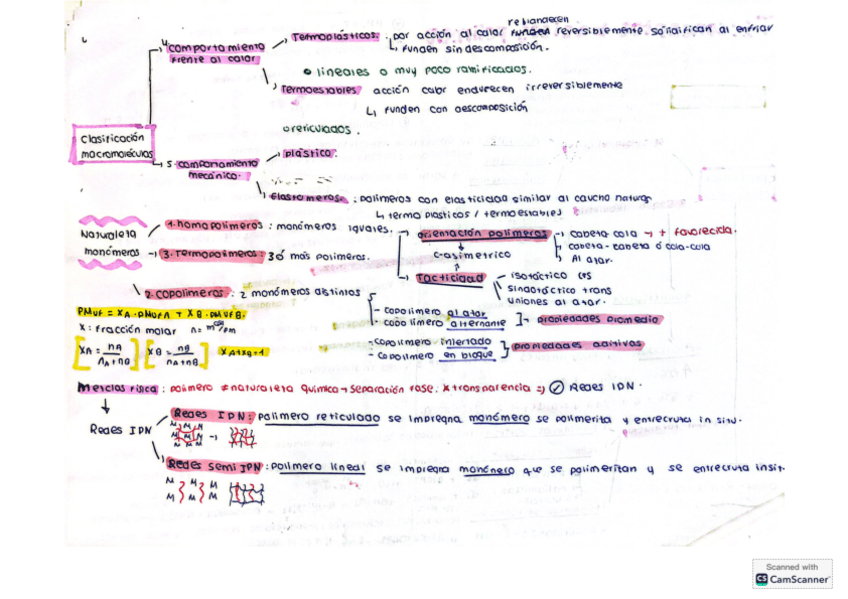 Clasificación
macromoléculas
4. comportamiento
frente al calor
Termoplásticos: por acción al calor funden reblandecen reversiblemente. solidifican al enfriar
↳ funden sin descomposición.
• lineales o muy poco ramificados.
Termoestables acción calor endurecen irreversiblemente
↳ funden con descomposición
o reticulados.
5. comportamiento
mecánico.
plástico.
Elastómeros: polímeros con elasticidad similar al caucho natural
↳ termoplasticos / termoestables
Naturaleza
monómeros
1. homopolimeros: monómeros iguales.
3. Termopolimeros: 3 ó más polimeros.
2. copolimeros: 2 monómeros distintos
orientación polimeros → cabeza cola → + favorecida.
cabeza-cabeza ó cola-cola
Al azar.
C-asimetrico
Tacticidad
isotáctico cis
sindiotáctico trans
uniones al azar.
PMUF = XA·PMUFA + XB·PMUFB.
X: fracción molar
XA = nA / nA + nB
XB = nB / nA + nB
XA + XB = 1
- copolimero al azar
- copolimero alternante
propiedades promedio
- copolimero injertado
- copolimero en bloque
propiedades aditivas
Mezclas física: polimero ≠ naturaleza química → separación fase. x transparencia => Redes IDN.
Redes IPN
Redes IPN: polimero reticulado se impregna monómero se polimeriza y entrecruza in situ.
M M M
M M M
M M
Redes semi IPN: polimero lineal se impregna monónero que se polimerizan y se entrecruza insit.
M M M
M M M
Scanned with
CS CamScanner